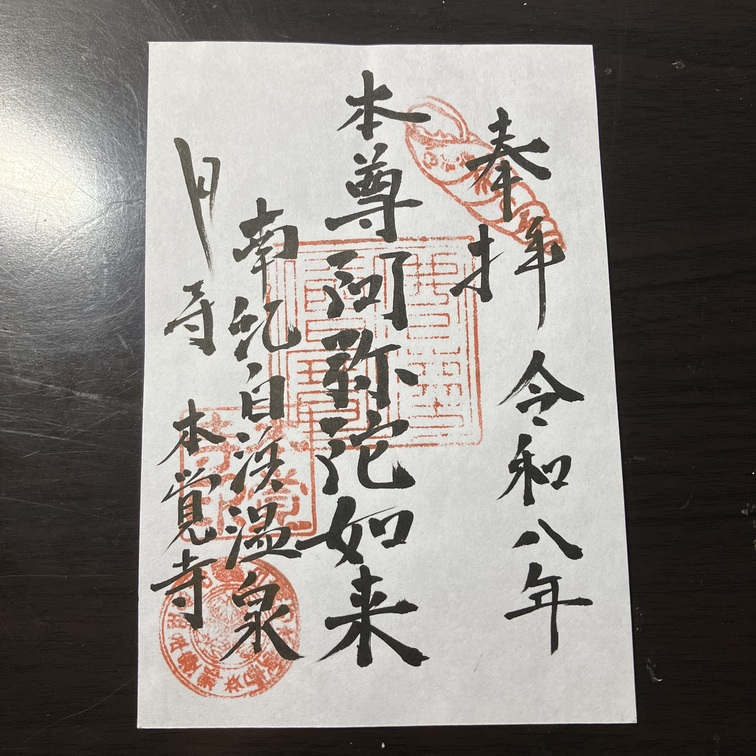 奉拝 令和八年
本尊阿弥陀如来
南紀白浜温泉
貝寺 本覚寺